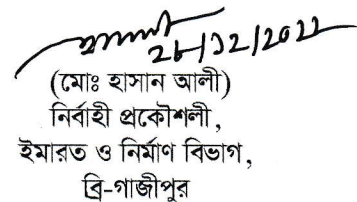 ২৮/১২/২০২২
(মোঃ হাসান আলী)
নির্বাহী প্রকৌশলী,
ইমারত ও নির্মাণ বিভাগ,
ব্রি-গাজীপুর